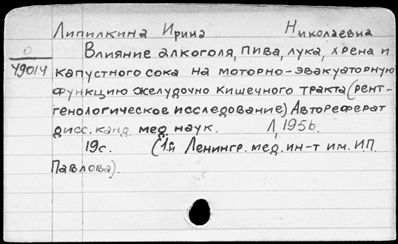 Липилкина Ирина Николаевна
О
49014
Влияние алкоголя, пива, лука, хрена и
капустного сока на моторно-эвакуаторную
функцию желудочно кишечного тракта (рент-
генологическое исследование) Автореферат
дисс. канд. мед. наук. Л, 1956.
19с. (1й Ленингр. мед. ин-т им. ИП.
Павлова).